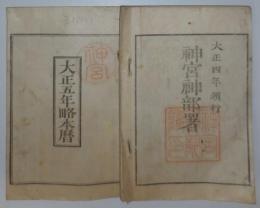 大正四年頒行
神宮神部署
大正五年略本暦
神宮